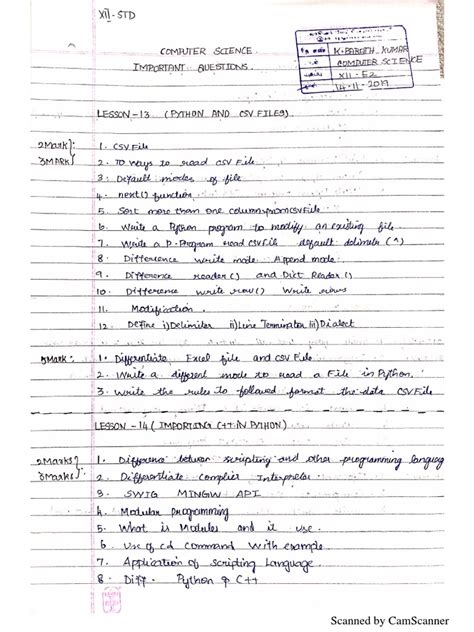 XII-STD
COMPUTER SCIENCE.
IMPORTANT QUESTIONS.
K. BARATH KUMAR
COMPUTER SCIENCE
XII - E2
14-11-2019
LESSON-13 (PYTHON AND CSV FILES).
2Mark
3MARK
1. CSV File
2. TO ways to read CSV File
3. Default modes of file
4. next() function
5. Sort more than one column from CSV File
6. Write a Python program to modify an existing file
7. Write a P. Program read CSV File default delimeter (^)
8. Difference write mode Append mode.
9. Difference reader() and Dict Reader()
10. Difference Write row() Write rows
11. Modification.
12. Define i) Delimiter ii) Line Terminator iii) Dialect
5Mark :
1. Differentiate Excel file and CSV File.
2. Write a different mode to read a File in Python.
3. Write the rules to followed format the data CSV File
LESSON-14 ( IMPORTING C++ IN PYTHON)
2Marks
3Marks
1. Difference betwen scripting and other programming languag
2. Differentiate Complier Interpreter
3. SWIG MINGW API
4. Modular programming
5. What is Modules and it use.
6. Use of cd command with example.
7. Application of Scripting Language.
8. Diff. Python & C++
Scanned by CamScanner